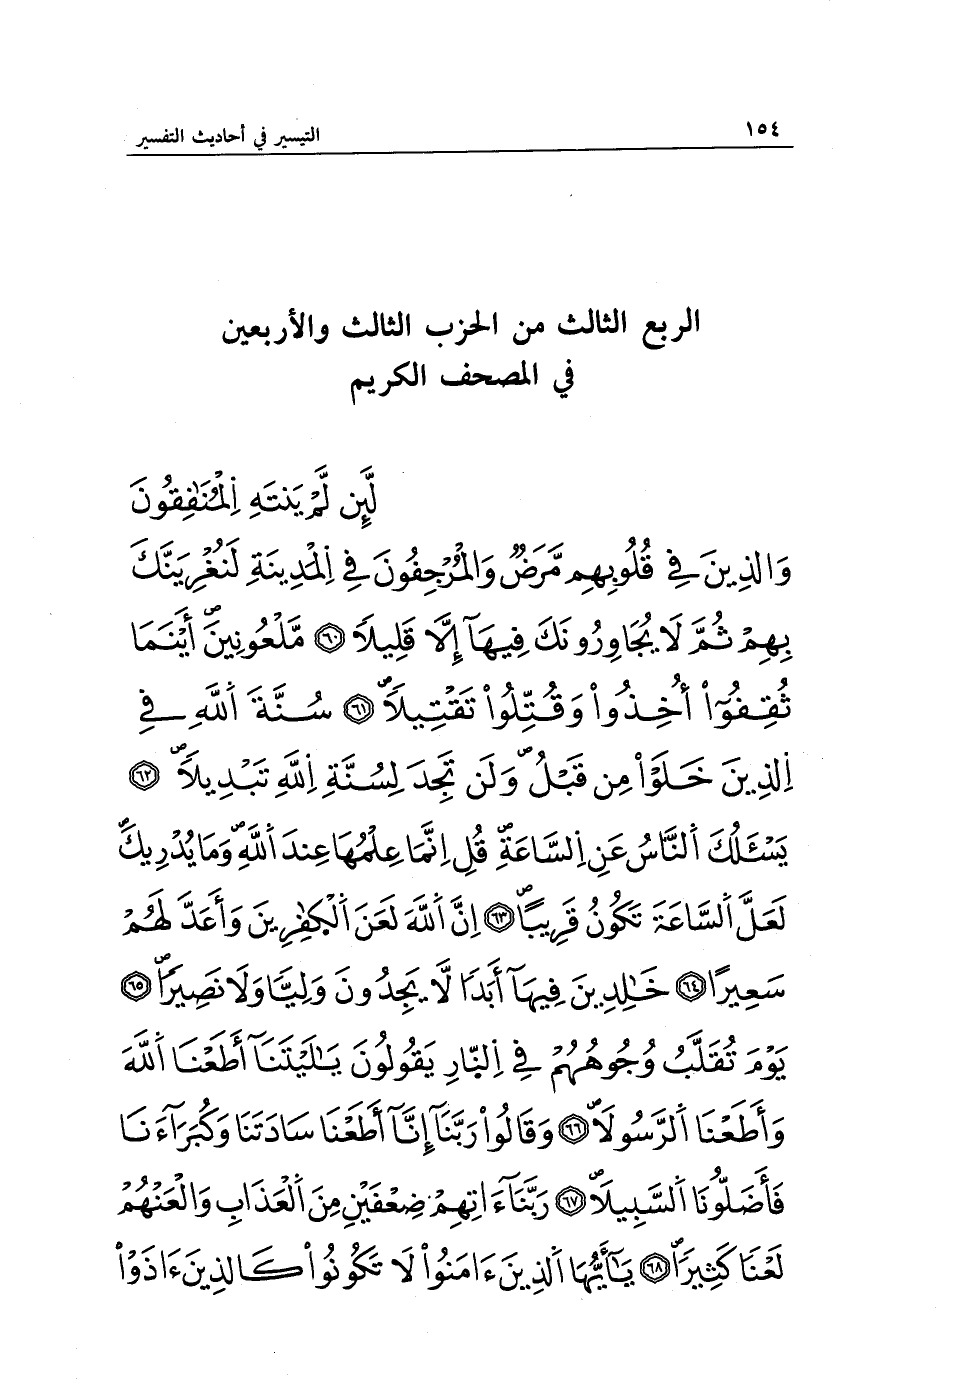 ١٥٤
التيسير في أحاديث التفسير
الربع الثالث من الحزب الثالث والأربعين
في المصحف الكريم
لَّئِن لَّمْ يَنتَهِ اِ۬لْمُنَٰفِقُونَ
وَالذِينَ فِي قُلُوبِهِم مَّرَضٞ وَالْمُرْجِفُونَ فِي اِ۬لْمَدِينَةِ لَنُغْرِيَنَّكَ
بِهِمْ ثُمَّ لَا يُجَاوِرُونَكَ فِيهَآ إِلَّا قَلِيلاٗ ٦٠ مَّلْعُونِينَۖ أَيْنَمَا
ثُقِفُوٓاْ أُخِذُواْ وَقُتِّلُواْ تَقْتِيلاٗۖ ٦١ سُنَّةَ اَ۬للَّهِ فِي
اِ۬لذِينَ خَلَوْاْ مِن قَبْلُۖ وَلَن تَجِدَ لِسُنَّةِ اِ۬للَّهِ تَبْدِيلاٗۖ ٦٢
يَسْـَٔلُكَ اَ۬لنَّاسُ عَنِ اِ۬لسَّاعَةِۖ قُلِ اِنَّمَا عِلْمُهَا عِندَ اَ۬للَّهِۖ وَمَا يُدْرِيكَۖ
لَعَلَّ اَ۬لسَّاعَةَ تَكُونُ قَرِيباًۖ ٦٣ اِنَّ اَ۬للَّهَ لَعَنَ اَ۬لْكٰ۪فِرِينَ وَأَعَدَّ لَهُمْ
سَعِيراً ٦٤ خَٰلِدِينَ فِيهَآ أَبَداٗ لَّا يَجِدُونَ وَلِيّاٗ وَلَا نَصِيراٗۖ ٦٥
يَوْمَ تُقَلَّبُ وُجُوهُهُمْ فِي اِ۬لنّ۪ارِ يَقُولُونَ يَٰلَيْتَنَآ أَطَعْنَا اَ۬للَّهَ
وَأَطَعْنَا اَ۬لرَّسُولَاۖ ٦٦ وَقَالُواْ رَبَّنَآ إِنَّآ أَطَعْنَا سَادَتَنَا وَكُبَرَآءَنَا
فَأَضَلُّونَا اَ۬لسَّبِيلَاۖ ٦٧ رَبَّنَآ ءَاتِهِمْ ضِعْفَيْنِ مِنَ اَ۬لْعَذَابِ وَالْعَنْهُمْ
لَعْناٗ كَثِيراٗۖ ٦٨ يَٰٓأَيُّهَا اَ۬لذِينَ ءَامَنُواْ لَا تَكُونُواْ كَالذِينَ ءَاذَوْاْ